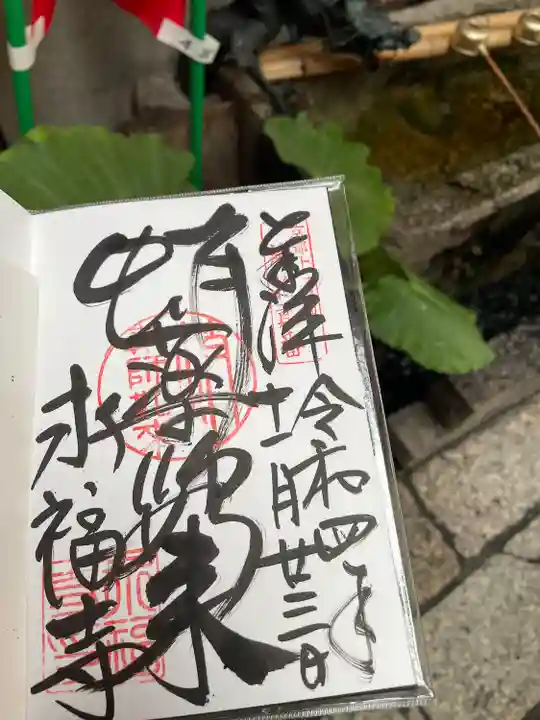 奉拝
令和四年
十一月廿三日
蛸薬師如来
永福寺